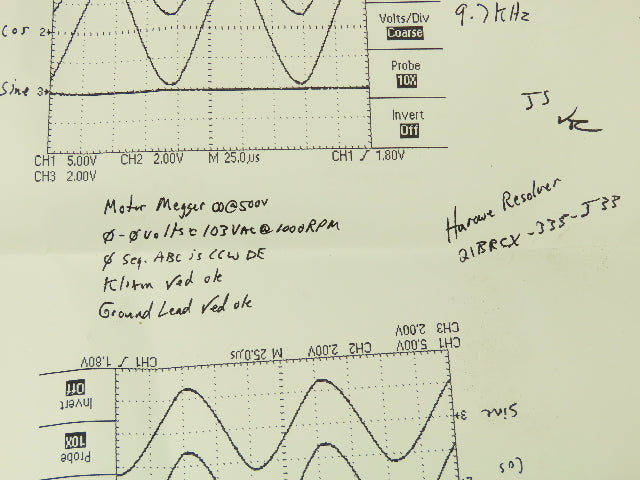 9.7 KHz
Volts/Div
Coarse
Cos 2
Probe
10X
Sine 3
Invert
Off
J5
CH1 5.00V CH2 2.00V M 25.0µs CH1 ƒ 1.80V
CH3 2.00V
Motor Megger ∞@500V
Ø-Ø Volts = 103VAC@1000RPM
Ø Seq. ABC is CCW DE
Klixon Ved ok
Ground Lead Ved ok
Harowe Resolver
21BRCX-335-J33
CH1 5.00V CH2 2.00V M 25.0µs CH1 ƒ 1.80V
CH3 2.00V
Invert
Off
Sine 3
Probe
10X
Cos 2